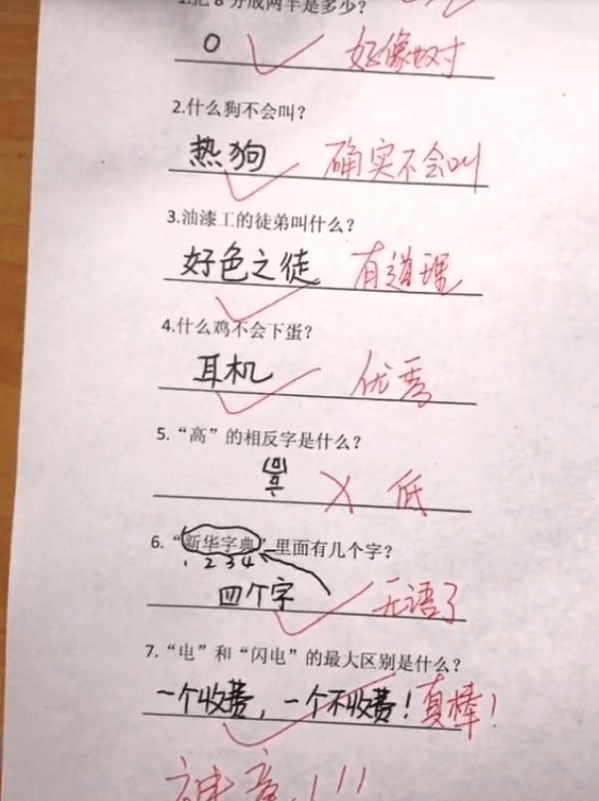 1.把 8 分成两半是多少?
0 好像也对
2.什么狗不会叫?
热狗 确实不会叫
3.油漆工的徒弟叫什么?
好色之徒 有道理
4.什么鸡不会下蛋?
耳机 优秀
5.“高”的相反字是什么?
低
6.“新华字典”里面有几个字?
1 2 3 4
四个字 无语了
7.“电”和“闪电”的最大区别是什么?
一个收费,一个不收费! 真棒!
神童!!!